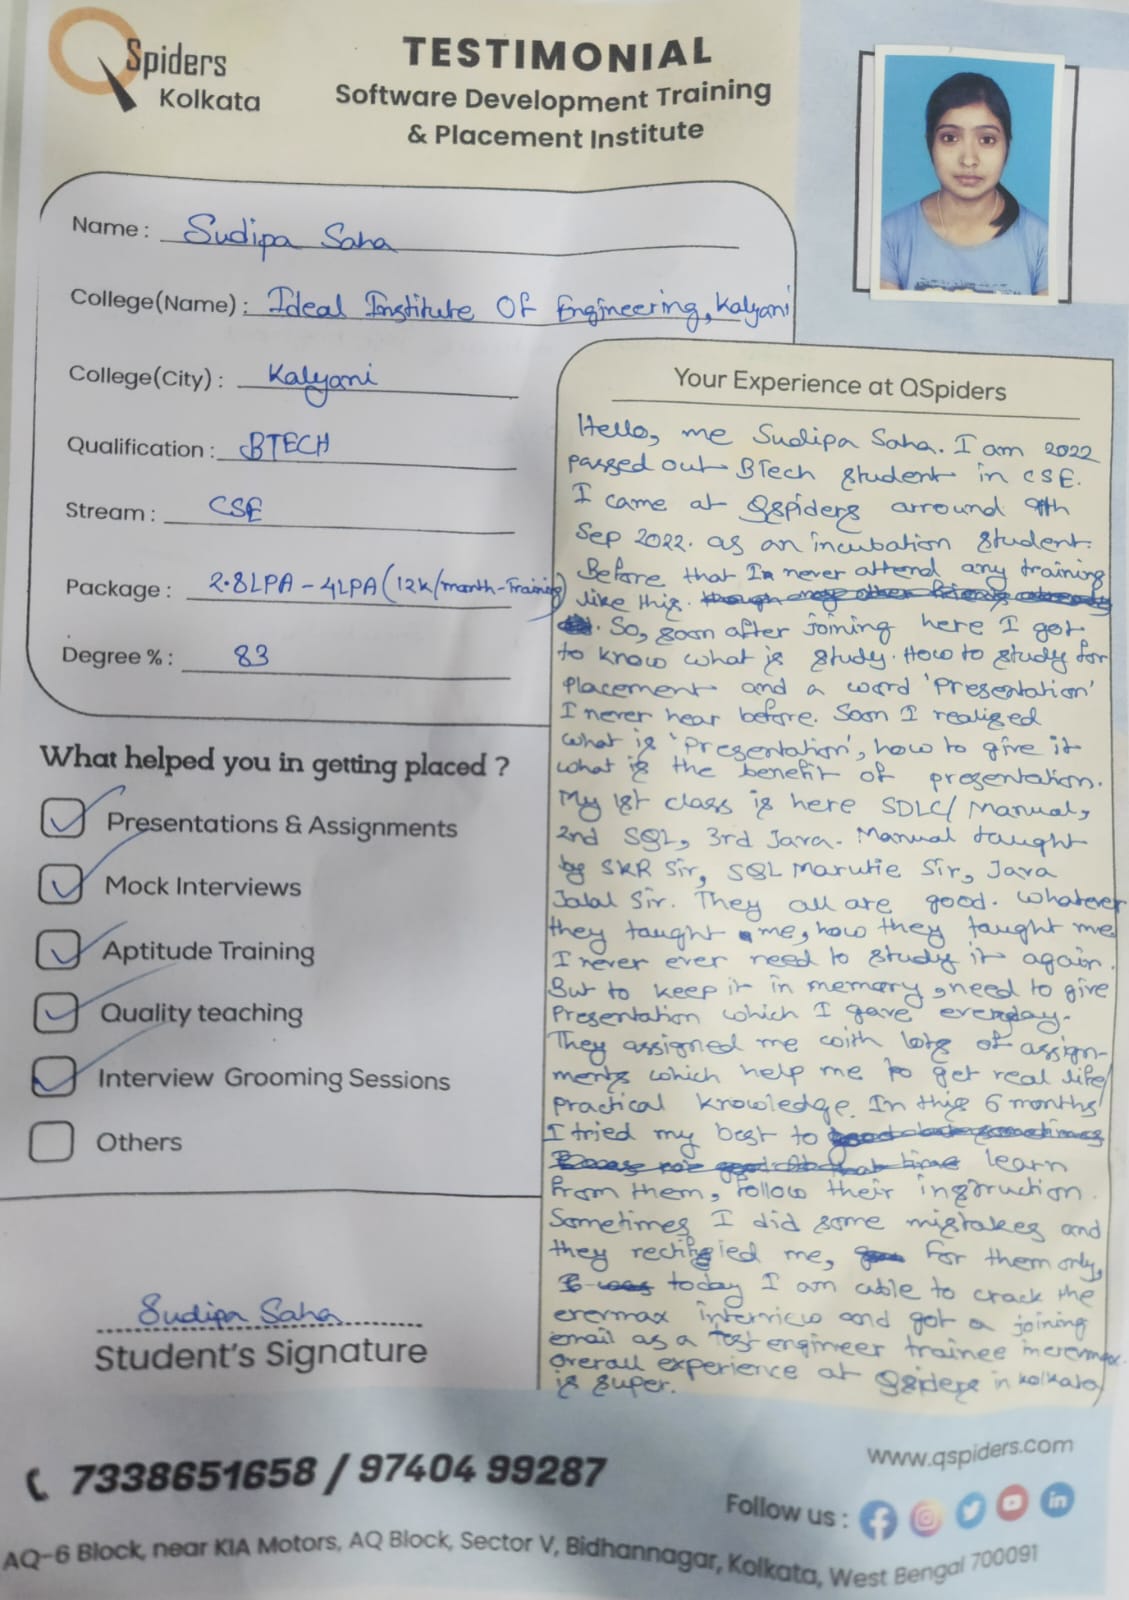 QSpiders
Kolkata
TESTIMONIAL
Software Development Training
& Placement Institute
Name : Sudipa Saha
College(Name) : Ideal Institute Of Engineering, Kalyani
College(City) : Kalyani
Qualification : BTECH
Stream : CSE
Package : 2.8LPA - 4LPA (12k/month-Training)
Degree % : 83
What helped you in getting placed ?
Presentations & Assignments
Mock Interviews
Aptitude Training
Quality teaching
Interview Grooming Sessions
Others
Sudipa Saha
Student's Signature
Your Experience at QSpiders
Hello, me Sudipa Saha. I am 2022
passed out BTech student in CSE.
I came at Qspiders arround 9th
Sep 2022. as an incubation student.
Before that I never attend any training
like this.
So, soon after joining here I got
to know what is study. How to study for
placement and a word 'Presentation'
I never hear before. Soon I realised
what is 'presentation', how to give it
what is the benefit of presentation.
My 1st class is here SDLC/Manual,
2nd SQL, 3rd Java. Manual taught
by SKR Sir, SQL Marutie Sir, Java
Jalal Sir. They all are good. Whatever
they taught me, how they taught me
I never ever need to study it again.
But to keep it in memory, need to give
Presentation which I gave everyday.
They assigned me with lots of assign-
ments which help me to get real life/
practical knowledge. In this 6 months
I tried my best to
learn
from them, follow their instruction.
Sometimes I did some mistakes and
they rectified me, for them only,
today I am able to crack the
erermax interview and got a joining
email as a Test engineer trainee in erermax.
overall experience at Qspiders in kolkata
is super.
7338651658 / 97404 99287
www.qspiders.com
Follow us :
AQ-6 Block, near KIA Motors, AQ Block, Sector V, Bidhannagar, Kolkata, West Bengal 700091